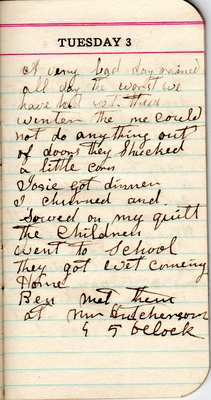 TUESDAY 3
A very bad day rained
all day the worst we
have had yet this
winter the me could
not do anything out
of doors they Shucked
a little corn
Josie got dinner
I churned and
Sowed on my quilt
The Children
went to School
They got wet comeing
Home
Ben met them
at Hutcherson
5 oclock